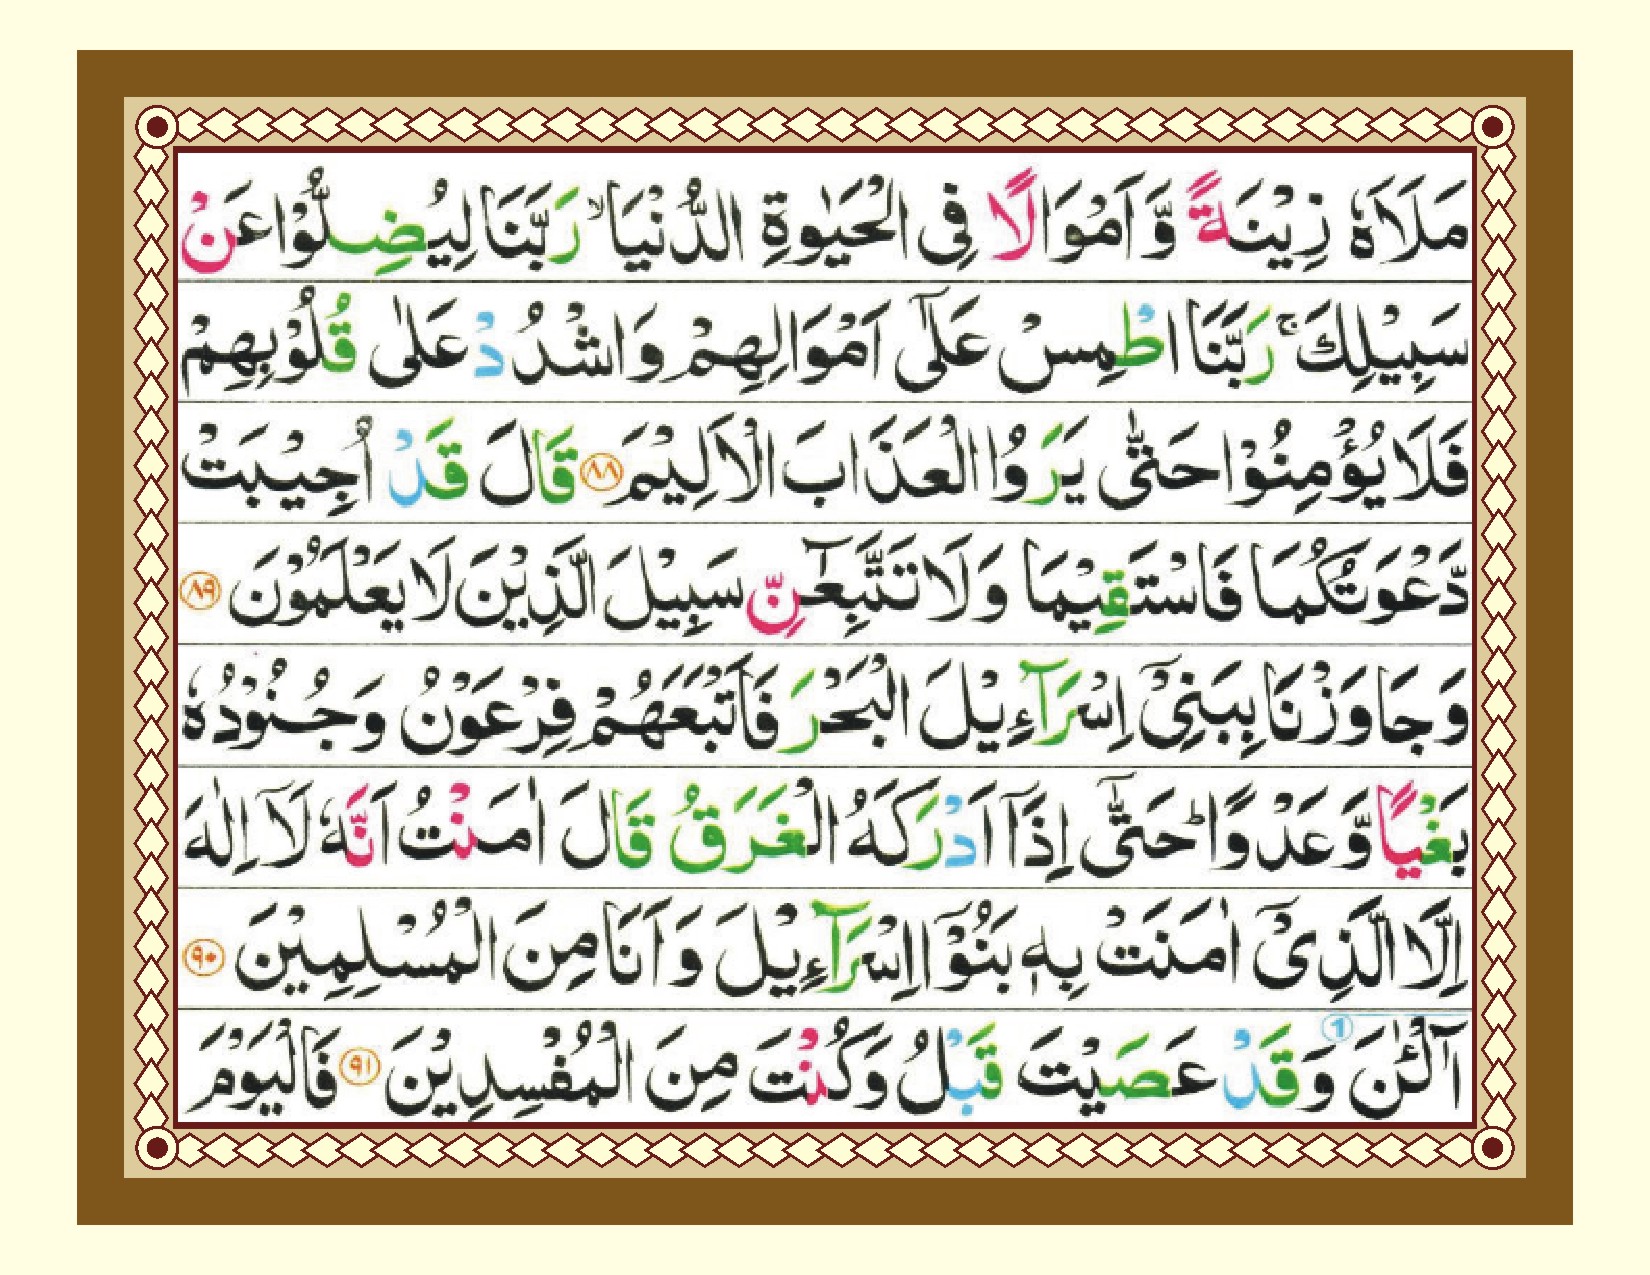 مَلَاَهٗ زِيْنَةً وَّاَمْوَالًا فِى الْحَيٰوةِ الدُّنْيَا ۙ رَبَّنَا لِيُضِلُّوْا عَنْ
سَبِيْلِكَ ۚ رَبَّنَا اطْمِسْ عَلٰٓى اَمْوَالِهِمْ وَاشْدُدْ عَلٰى قُلُوْبِهِمْ
فَلَا يُؤْمِنُوْا حَتّٰى يَرَوُا الْعَذَابَ الْاَلِيْمَ ۸۸ قَالَ قَدْ اُجِيْبَتْ
دَّعْوَتُكُمَا فَاسْتَقِيْمَا وَلَا تَتَّبِعٰٓنِّ سَبِيْلَ الَّذِيْنَ لَا يَعْلَمُوْنَ ۸۹
وَجَاوَزْنَا بِبَنِىْٓ اِسْرَآءِيْلَ الْبَحْرَ فَاَتْبَعَهُمْ فِرْعَوْنُ وَجُنُوْدُهٗ
بَغْيًا وَّعَدْوًا ؕ حَتّٰٓى اِذَآ اَدْرَكَهُ الْغَرَقُ قَالَ اٰمَنْتُ اَنَّهٗ لَآ اِلٰهَ
اِلَّا الَّذِىْٓ اٰمَنَتْ بِهٖ بَنُوْٓا اِسْرَآءِيْلَ وَاَنَا مِنَ الْمُسْلِمِيْنَ ۹۰
آٰلْـٰٔنَ ① وَقَدْ عَصَيْتَ قَبْلُ وَكُنْتَ مِنَ الْمُفْسِدِيْنَ ۹۱ فَالْيَوْمَ